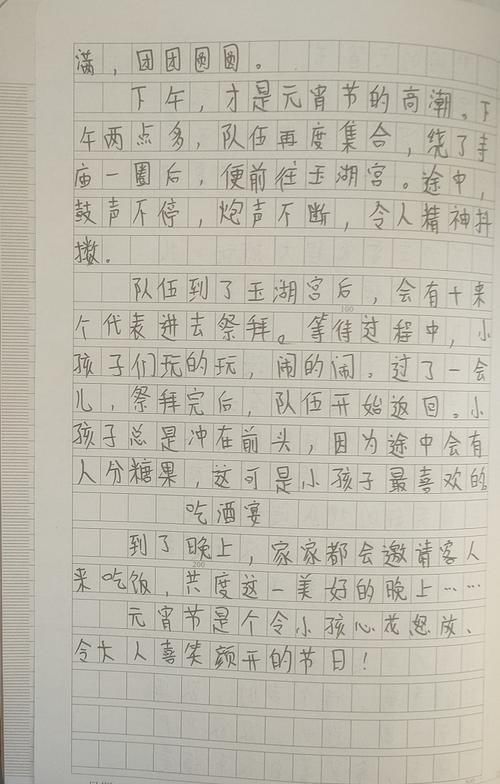 满，团团圆圆。
下午，才是元宵节的高潮。下
午两点多，队伍再度集合，绕了寺
庙一圈后，便前往玉湖宫。途中，
鼓声不停，炮声不断，令人精神抖
擞。
队伍到了玉湖宫后，会有十来
100
个代表进去祭拜。等待过程中，小
孩子们玩的玩，闹的闹。过了一会
儿，祭拜完后，队伍开始返回。小
孩子总是冲在前头，因为途中会有
人分糖果，这可是小孩子最喜欢的。
吃酒宴
到了晚上，家家都会邀请客人
200
来吃饭，共度这一美好的晚上……
元宵节是个令小孩心花怒放、
令大人喜笑颜开的节日！